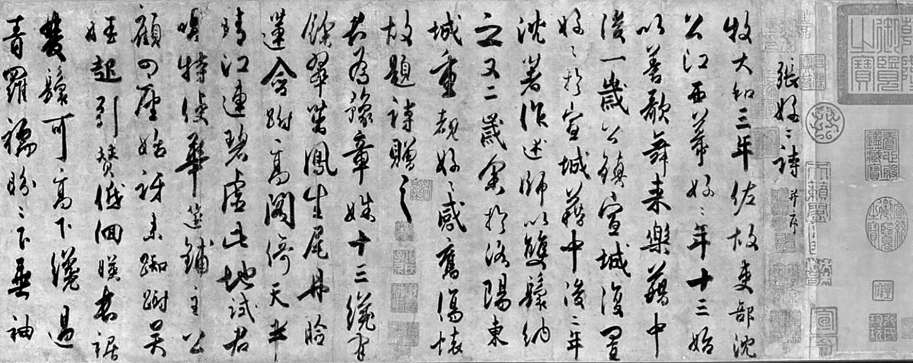 張好〻詩 并序
牧大和三年佐故吏部沈
公江西幕好〻年十三始
以善歌舞来樂籍中
後一歲公鎮宣城復置
好〻於宣城籍中後二年
沈著作述師以雙鬟納
之又二歲余於洛陽東
城重覩好〻感舊傷懷
故題詩贈之
君為豫章姝十三纔有
餘翠茁鳳生尾丹臉
蓮含跗高閣倚天半
晴江連碧虛此地試君
唱特使華筵鋪主公
顧四座始訝来踟蹰吴
娃起引賛低佪暎長裾
雙鬟可高下纔過
青羅襦盼〻下垂袖